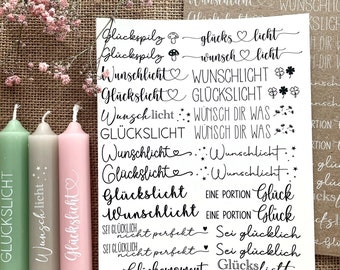 Glückspilz glücks licht
Glückspilz wunsch licht
Wunschlicht WUNSCHLICHT
Glückslicht GLÜCKSLICHT
Wunschlicht WÜNSCH DIR WAS
GLÜCKSLICHT WÜNSCH DIR WAS
Wunschlicht Wunschlicht
Glückslicht Wunschlicht
Glückslicht EINE PORTION Glück
Wunschlicht EINE PORTION Glück
SEI GLÜCKLICH nicht perfekt Sei glücklich
SEI GLÜCKLICH nicht perfekt Sei glücklich
Glücksmoment Glückslicht
GLÜCKSLICHT
Wunschlicht
Glückslicht